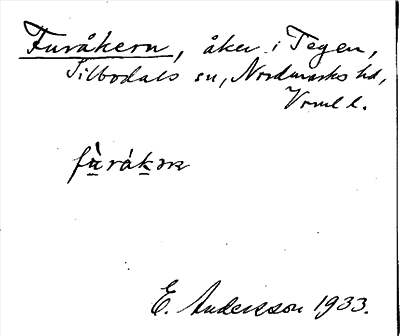 Furåkern, åker i Tegen,
Silbodals sn, Nordmarks hd,
Vrml l.
fùråkɷn
E. Andersson 1933.